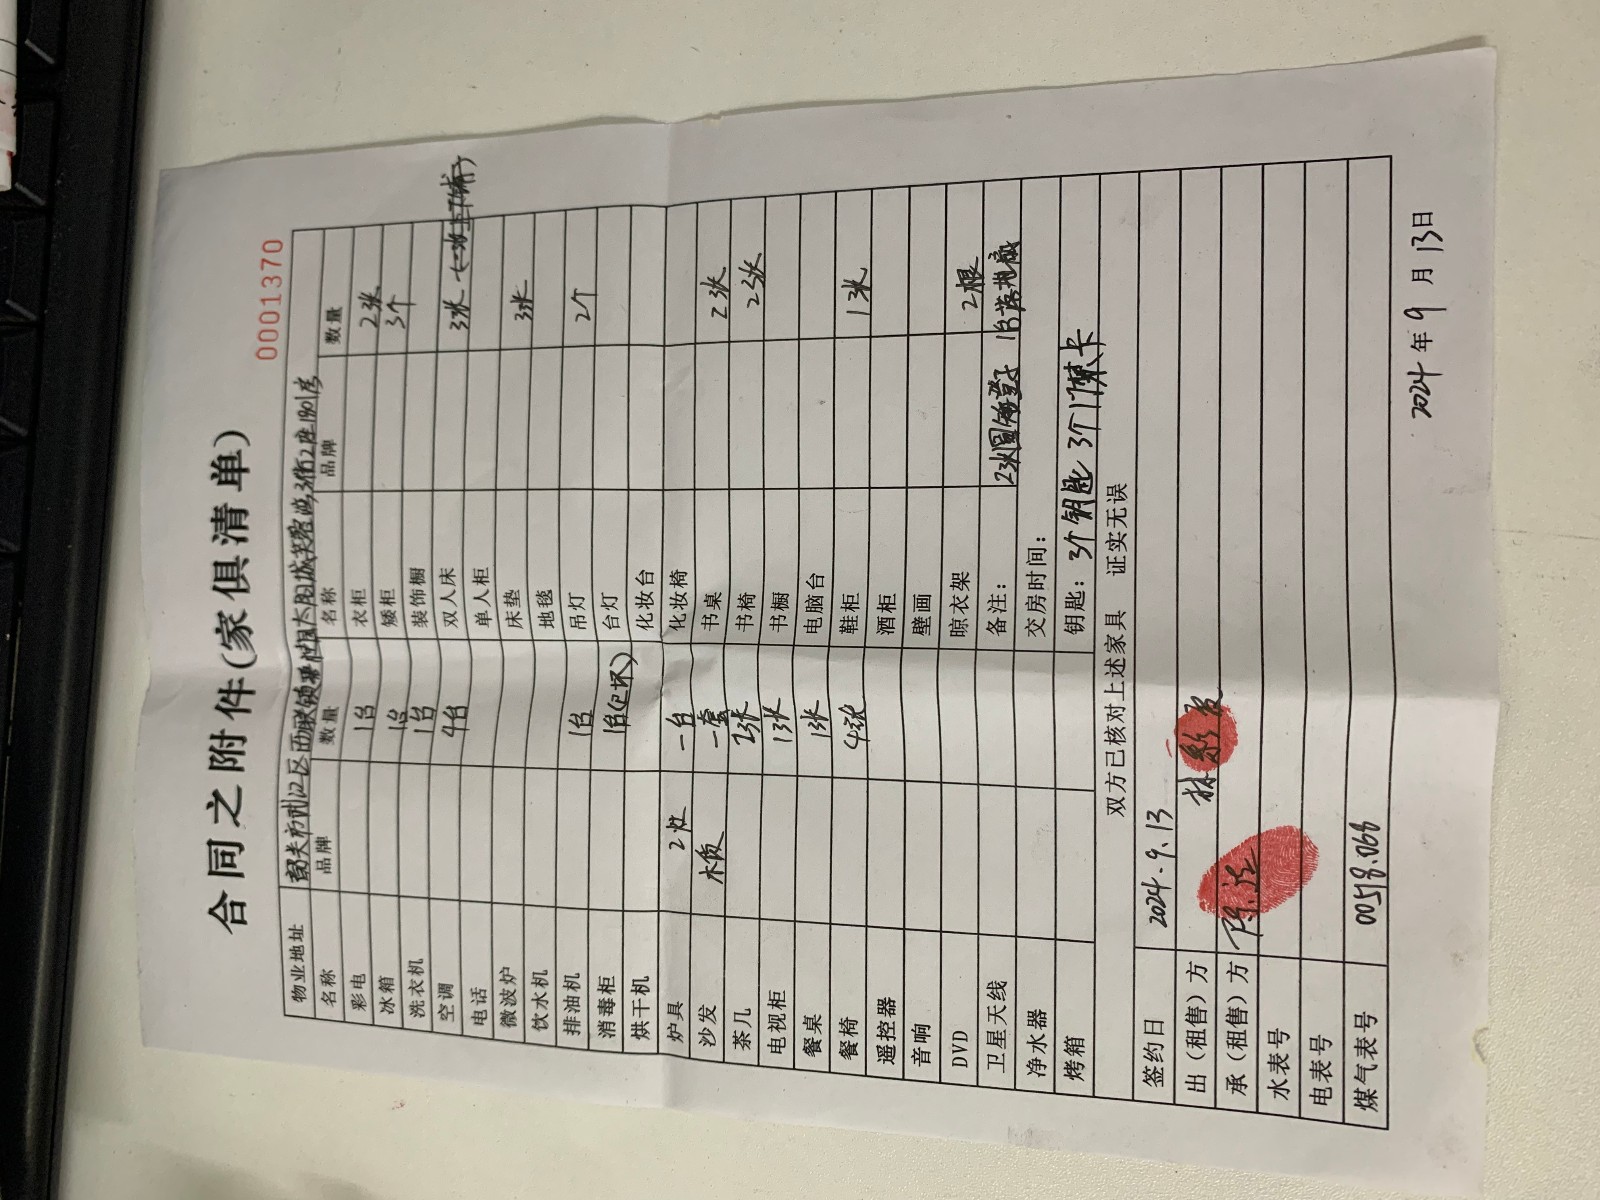 0001370
合同之附件(家俱清单)
物业地址 区 2座1901房
名称 品牌 数量 名称 品牌 数量
彩电 1台 衣柜 2张
冰箱 1台 矮柜 3个
洗衣机 1台 装饰橱
空调 4台 双人床 3张
电话 单人柜
微波炉 床垫 3张
饮水机 地毯
排油机 1台 吊灯 2个
消毒柜 1台(已坏) 台灯
烘干机 化妆台
炉具 2灶 一台 化妆椅
沙发 木质 一套 书桌 2张
茶几 2张 书椅 2张
电视柜 1张 书橱
餐桌 1张 电脑台
餐椅 4张 鞋柜 1张
遥控器 酒柜
音响 壁画
DVD 晾衣架 2根
卫星天线 备注: 2张圆 凳子 1台落地扇
净水器 交房时间:
烤箱 钥匙: 3个钥匙 3个门禁卡
双方已核对上述家具 证实无误
签约日 2024.9.13
出(租售)方 林
承(租售)方 陈
水表号
电表号
煤气表号 00518.068
2024年9月13日